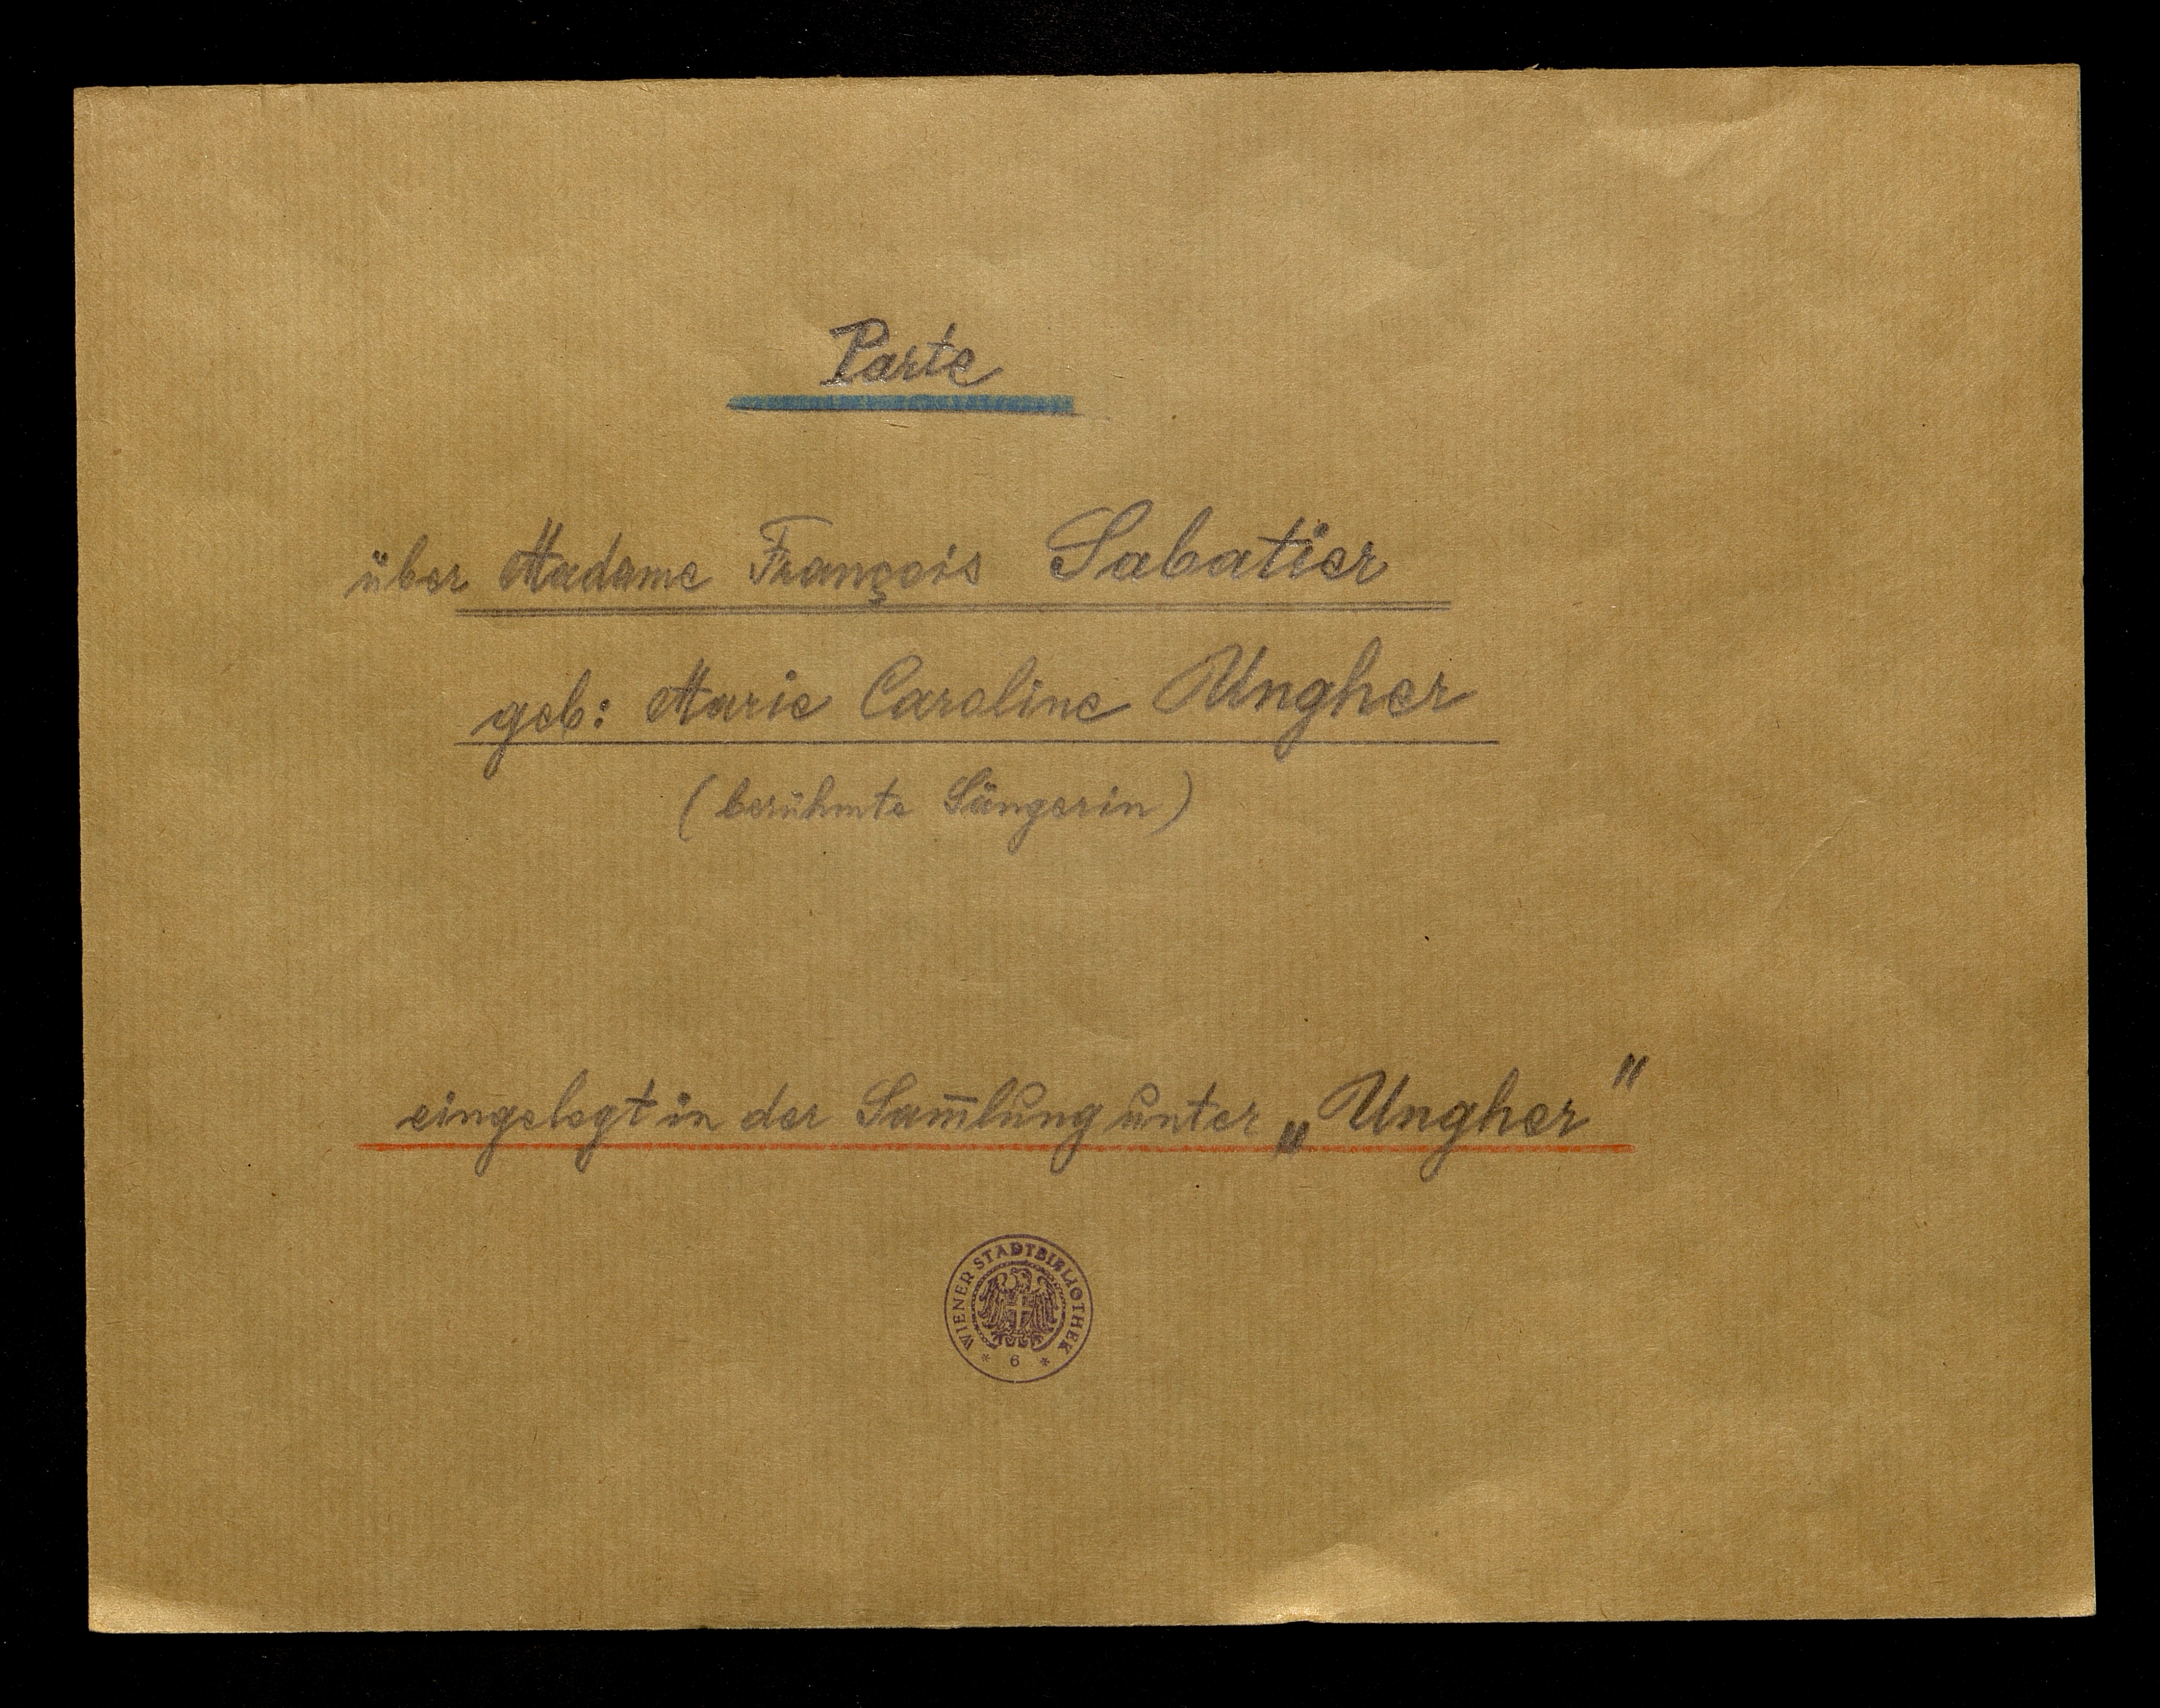 Parte
über Madame François Sabatier
geb: Marie Caroline Ungher
(berühmte Sängerin)
eingelegt in der Sam̅lung unter „Ungher"
WIENER STADTBIBLIOTHEK
* 6 *